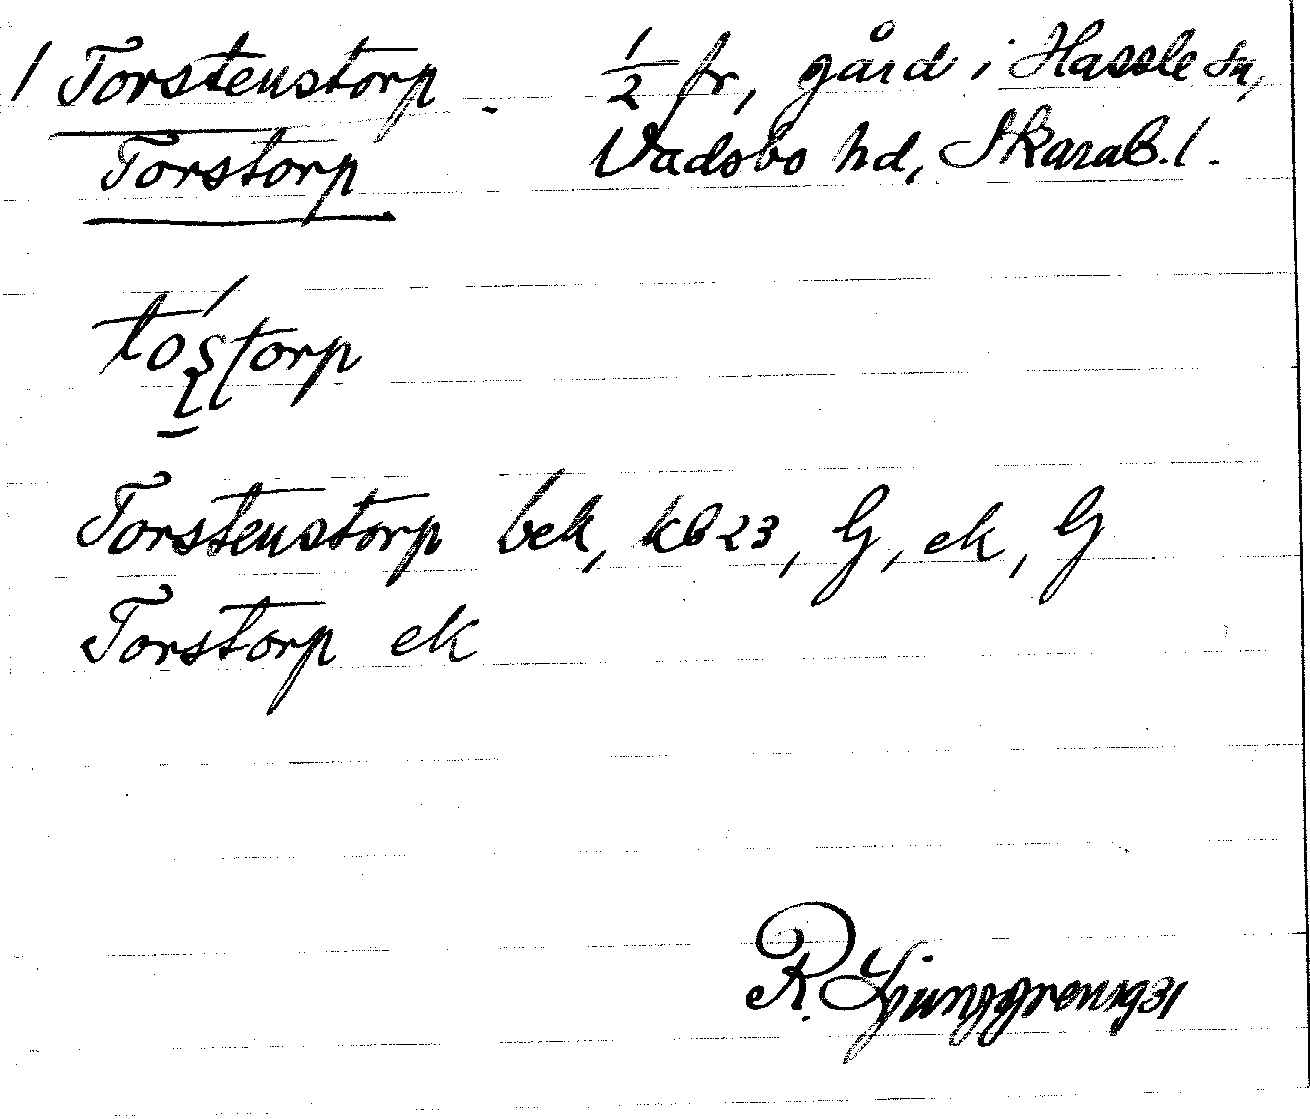 / Torstenstorp - 1/2 fr, gård i Hassle sn,
Torstorp Vadsbo hd, Skarab. l.
tos̱torp
Torstenstorp bek, kb 23, G, ek, G
Torstorp ek
R. Ljunggren 1931